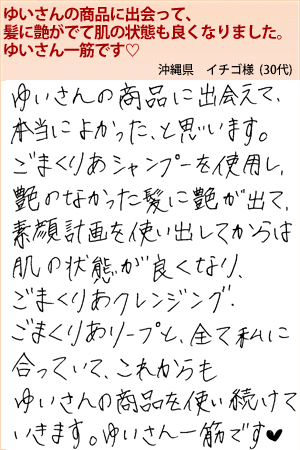 ゆいさんの商品に出会って、
髪に艶がでて肌の状態も良くなりました。
ゆいさん一筋です♡
沖縄県　イチゴ様 (30代)
ゆいさんの商品に出会えて、
本当によかった、と思います。
ごまくりあシャンプーを使用し、
艶のなかった髪に艶が出て、
素顔計画を使い出してからは
肌の状態が良くなり、
ごまくりあクレンジング、
ごまくりあリープと、全て私に
合っていて、これからも
ゆいさんの商品を使い続けて
いきます。ゆいさん一筋です♥